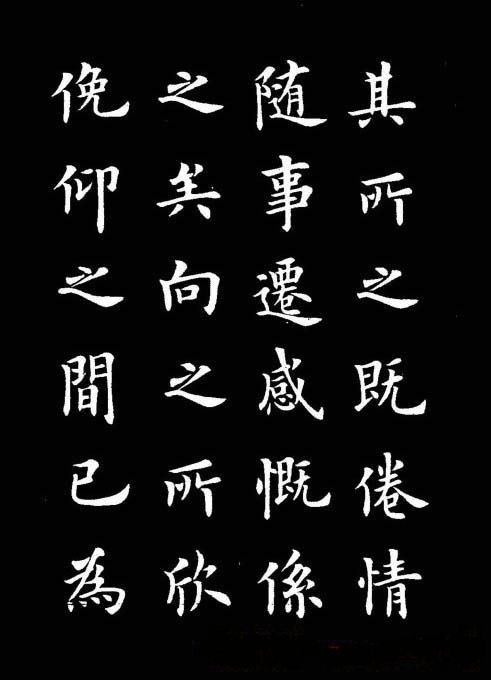 其所之既倦情
随事遷感慨係
之矣向之所欣
俛仰之間已為